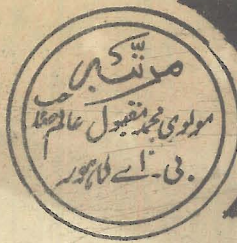 مرتبہ
مولوی محمد مقبول عالم صاحب
بی۔اے لاہور